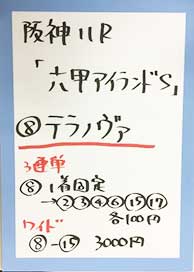 阪神11R
「六甲アイランドS」
⑧テラノヴァ
3連単
⑧1着固定
→②③④⑥⑮⑰
各100円
ワイド
⑧-⑮ 3000円